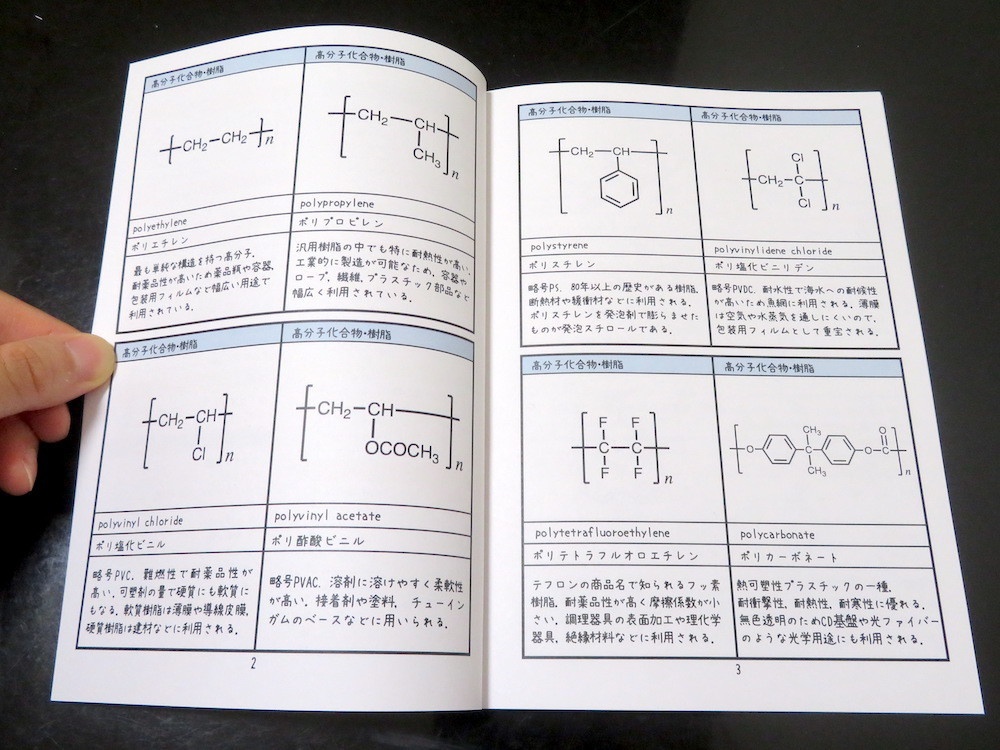 高分子化合物・樹脂
CH2-CH2 n
polyethylene
ポリエチレン
最も単純な構造を持つ高分子.
耐薬品性が高いため薬品瓶や容器,
包装用フィルムなど幅広い用途で
利用されている.
高分子化合物・樹脂
CH2-CH
CH3
n
polypropylene
ポリプロピレン
汎用樹脂の中でも特に耐熱性が高い.
工業的に製造が可能なため, 容器や
ロープ, 繊維, プラスチック部品など
幅広く利用されている.
高分子化合物・樹脂
CH2-CH
Cl
n
polyvinyl chloride
ポリ塩化ビニル
略号PVC. 難燃性で耐薬品性が
高い. 可塑剤の量で硬質にも軟質に
もなる. 軟質樹脂は薄膜や導線皮膜,
硬質樹脂は建材などに利用される.
高分子化合物・樹脂
CH2-CH
OCOCH3
n
polyvinyl acetate
ポリ酢酸ビニル
略号PVAC. 溶剤に溶けやすく柔軟性
が高い. 接着剤や塗料, チューイン
ガムのベースなどに用いられる.
2
高分子化合物・樹脂
CH2-CH
n
polystyrene
ポリスチレン
略号PS. 80年以上の歴史がある樹脂.
断熱材や緩衝材などに利用される.
ポリスチレンを発泡剤で膨らませた
ものが発泡スチロールである.
高分子化合物・樹脂
Cl
CH2-C
Cl
n
polyvinylidene chloride
ポリ塩化ビニリデン
略号PVDC. 耐水性で海水への耐候性
が高いため魚網に利用される. 薄膜
は空気や水蒸気を通しにくいので,
包装用フィルムとして重宝される.
高分子化合物・樹脂
F F
C-C
F F
n
polytetrafluoroethylene
ポリテトラフルオロエチレン
テフロンの商品名で知られるフッ素
樹脂. 耐薬品性が高く摩擦係数が小
さい. 調理器具の表面加工や理化学
器具, 絶縁材料などに利用される.
高分子化合物・樹脂
CH3 O
O C O-C
CH3
n
polycarbonate
ポリカーボネート
熱可塑性プラスチックの一種.
耐衝撃性, 耐熱性, 耐寒性に優れる.
無色透明のためCD基盤や光ファイバー
のような光学用途にも利用される.
3